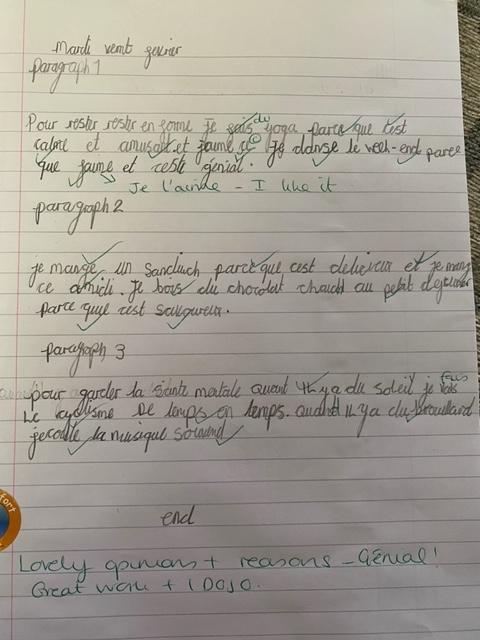 Mardi vemt fevrier
paragraph 1
Pour rester rester en forme Je fais du yoga parce que c'est
calme et amusant et jaume ça Je danse le week-end parce
que jaume et ceste génial.
Je l'aime - I like it
paragraph 2
je mange un sandwich parce que cest delicieux et je mang
ce a midi. Je bois du chocolat chaud au petit dejeuner
parce quye cest savoureux.
paragraph 3
pour garder la sante mentale quant il ya du soleil je fais
Le cyclisme De temps en temps. quand IL ya du Brouillard
jecoute la musique souvand
end
Lovely opinions + reasons - Génial!
Great work + 1 DOJO.